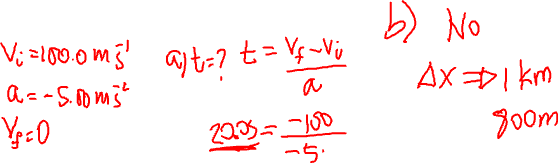 Vi = 100.0 m s⁻¹
a = -5.00 m s⁻²
Vf = 0
a) t = ? t = (Vf - Vi) / a
20.0s = -100 / -5.
b) No
Δx ⇒ 1 km
800m